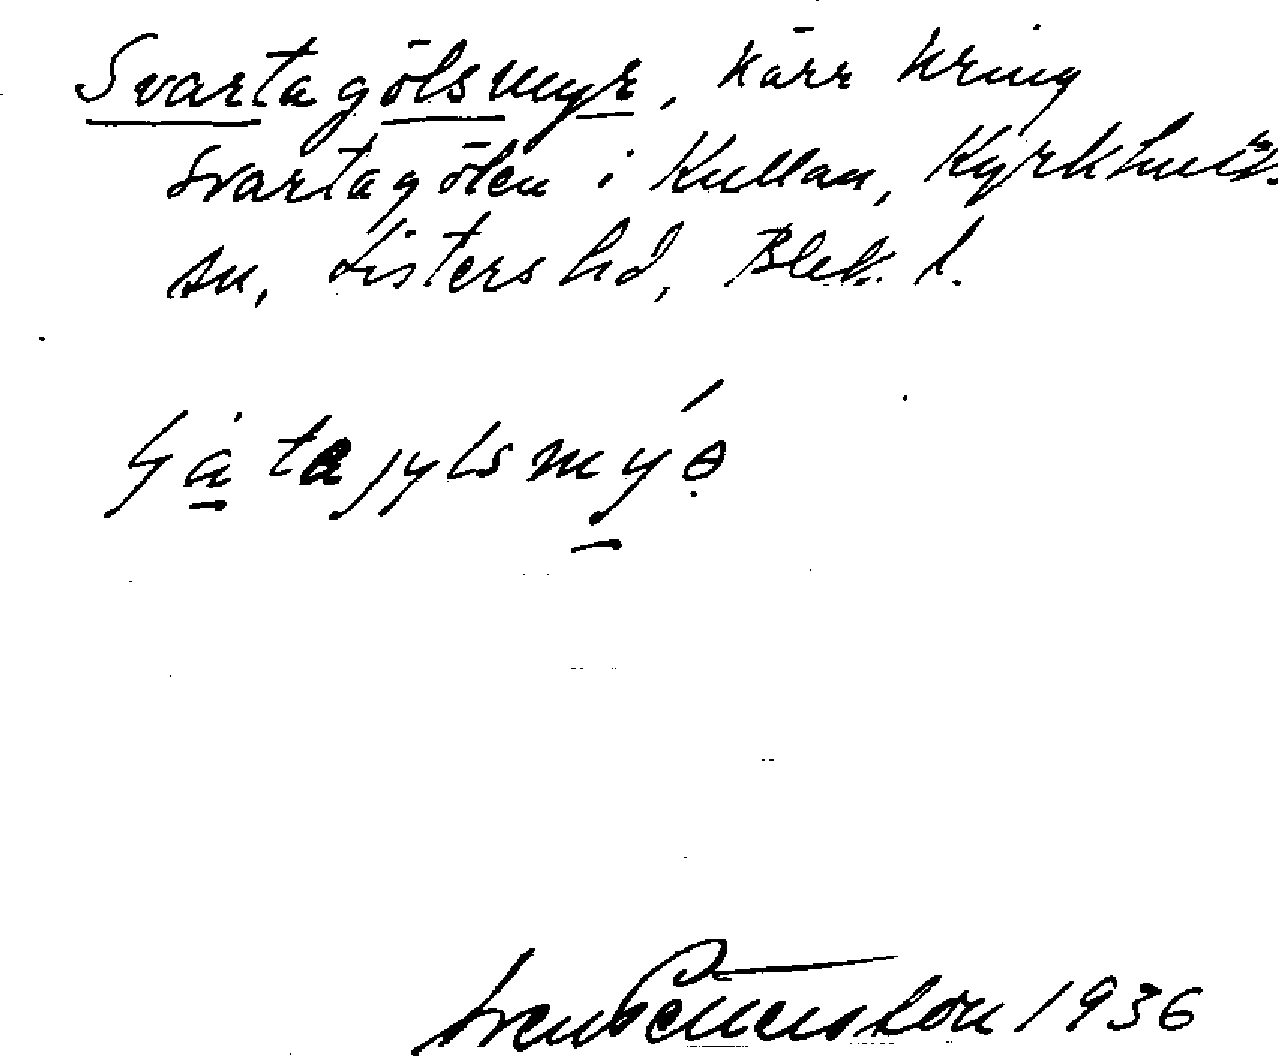 Svartagölsmyr, kärr kring
Svartagölen i Kullan, Kyrkhults
sn, Listers hd, Blek. l.
Sven Benson 1936